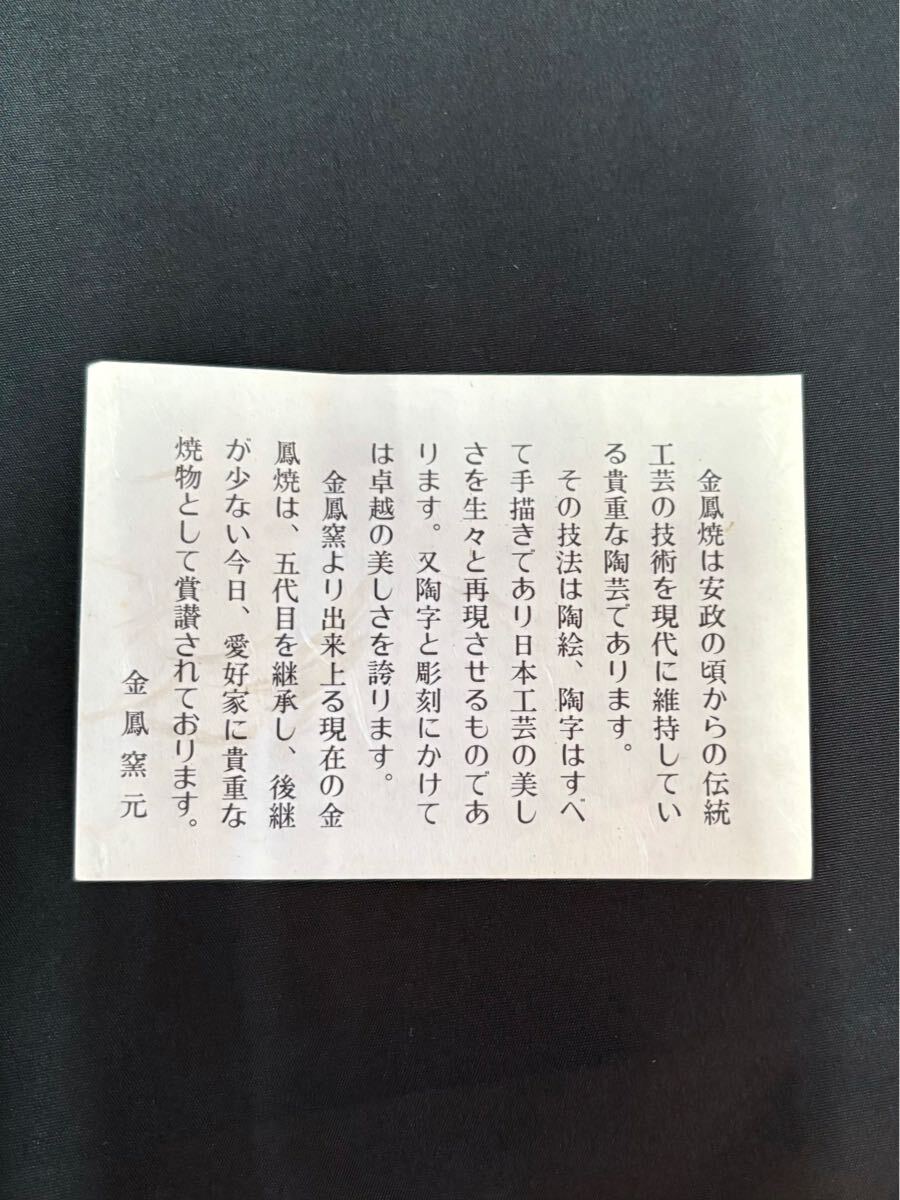 金鳳焼は安政の頃からの伝統
工芸の技術を現代に維持してい
る貴重な陶芸であります。
その技法は陶絵、陶字はすべ
て手描きであり日本工芸の美し
さを生々と再現させるものであ
ります。又陶字と彫刻にかけて
は卓越の美しさを誇ります。
金鳳窯より出来上る現在の金
鳳焼は、五代目を継承し、後継
が少ない今日、愛好家に貴重な
焼物として賞讃されております。
金鳳窯元